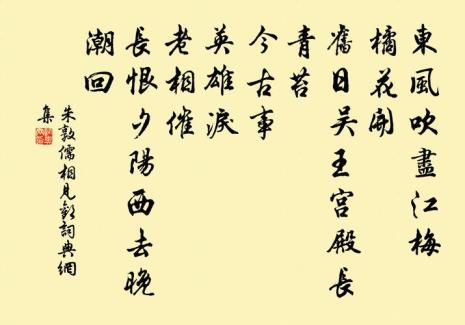 東風吹盡江梅
橘花開
舊日吳王宮殿長
青苔
今古事
英雄淚
老相催
長恨夕陽西去晚
潮回
朱敦儒相見歡詞典網
集